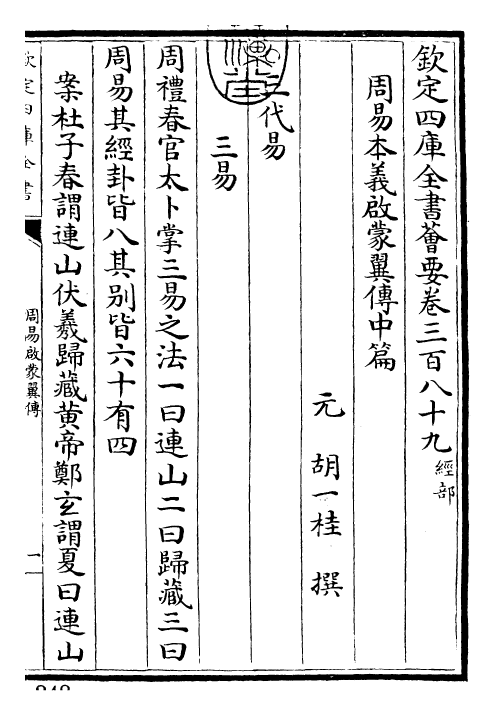 欽定四庫全書薈要卷三百八十九 經部
周易本義啟蒙翼傳中篇
元 胡一桂 撰
三代易
三易
周禮春官太卜掌三易之法一曰連山二曰歸藏三曰
周易其經卦皆八其别皆六十有四
案杜子春謂連山伏羲歸藏黄帝鄭玄謂夏曰連山
欽定四庫全書
周易啟蒙翼傳
一